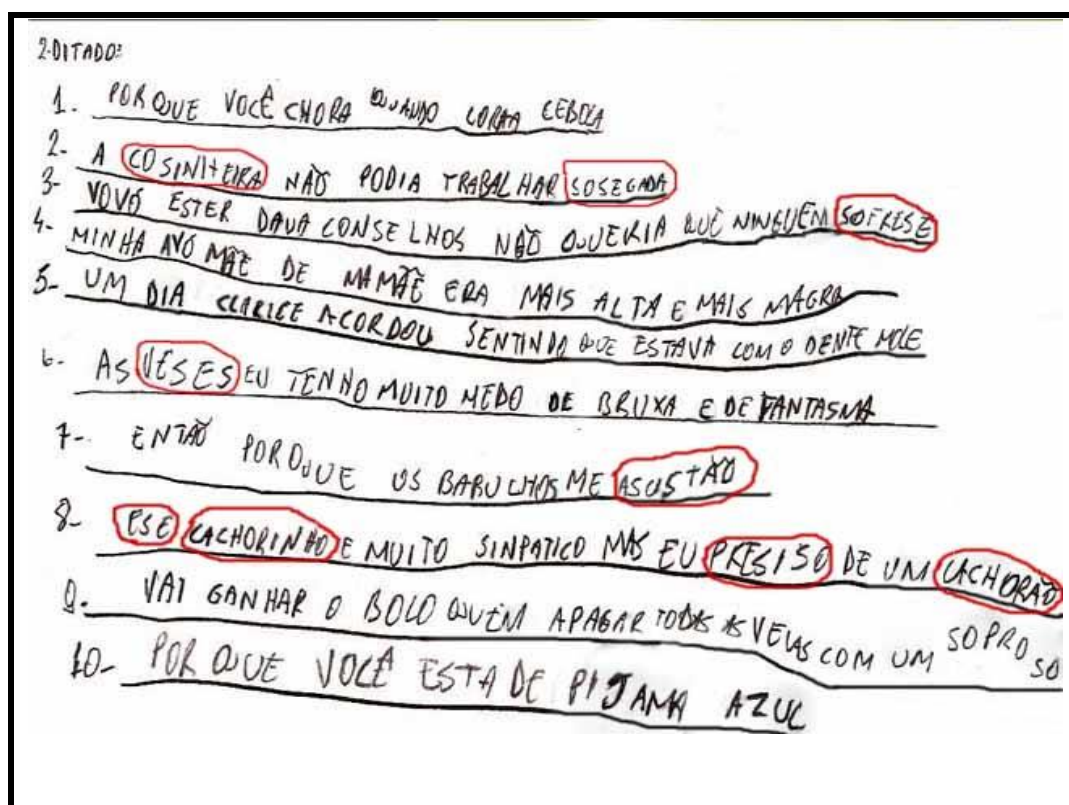 2-DITADO:
1. POR QUE VOCÊ CHORA QUANDO CORTA CEBOLA
2- A COSINHEIRA NÃO PODIA TRABALHAR SOSEGADA
3- VOVÓ ESTER DAVA CONSELHOS NÃO QUERIA QUE NINGUÉM SOFRESE
4- MINHA AVÓ MÃE DE MAMÃE ERA MAIS ALTA E MAIS MAGRA
5- UM DIA CLARICE ACORDOU SENTINDO QUE ESTAVA COM O DENTE MOLE
6- AS VESES EU TENHO MUITO MEDO DE BRUXA E DE FANTASMA
7- ENTÃO POR QUE OS BARULHOS ME ASUSTÃO
8- ESE CACHORINHO E MUITO SINPATICO MAS EU PRESISO DE UM CACHORÃO
9- VAI GANHAR O BOLO QUEM APAGAR TODAS AS VELAS COM UM SOPRO SO
10- POR QUE VOCÊ ESTA DE PIJAMA AZUL